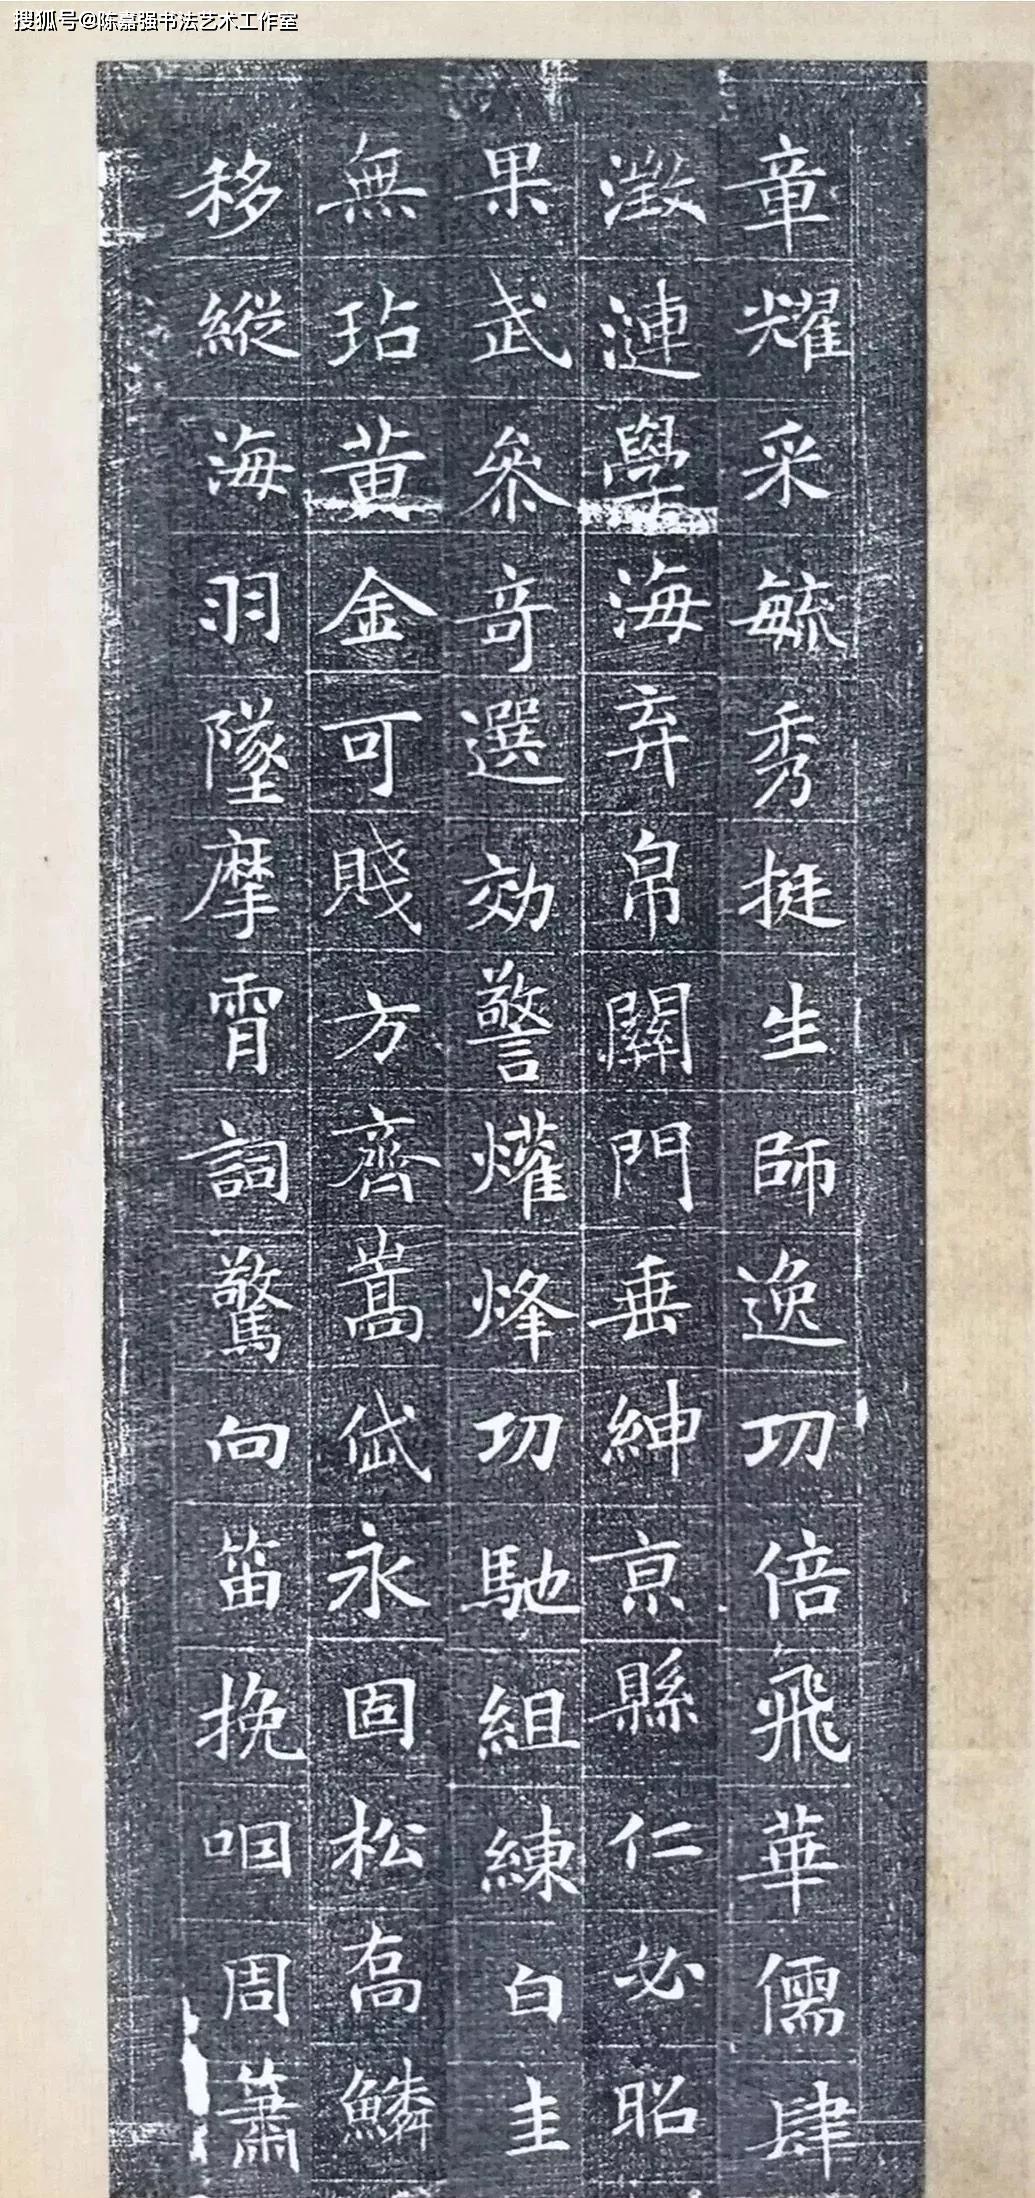 搜狐号@陈嘉强书法艺术工作室
章耀采毓秀挺生師逸功倍飛華儒肆
澂漣學海弃帛關門垂紳亰縣仁必昭
果武叅竒選効警爟烽功馳組練白圭
無玷黄金可賤方齊嵩岱永固松高鱗
移縱海羽墜摩霄詞驚向笛挽咽周簫